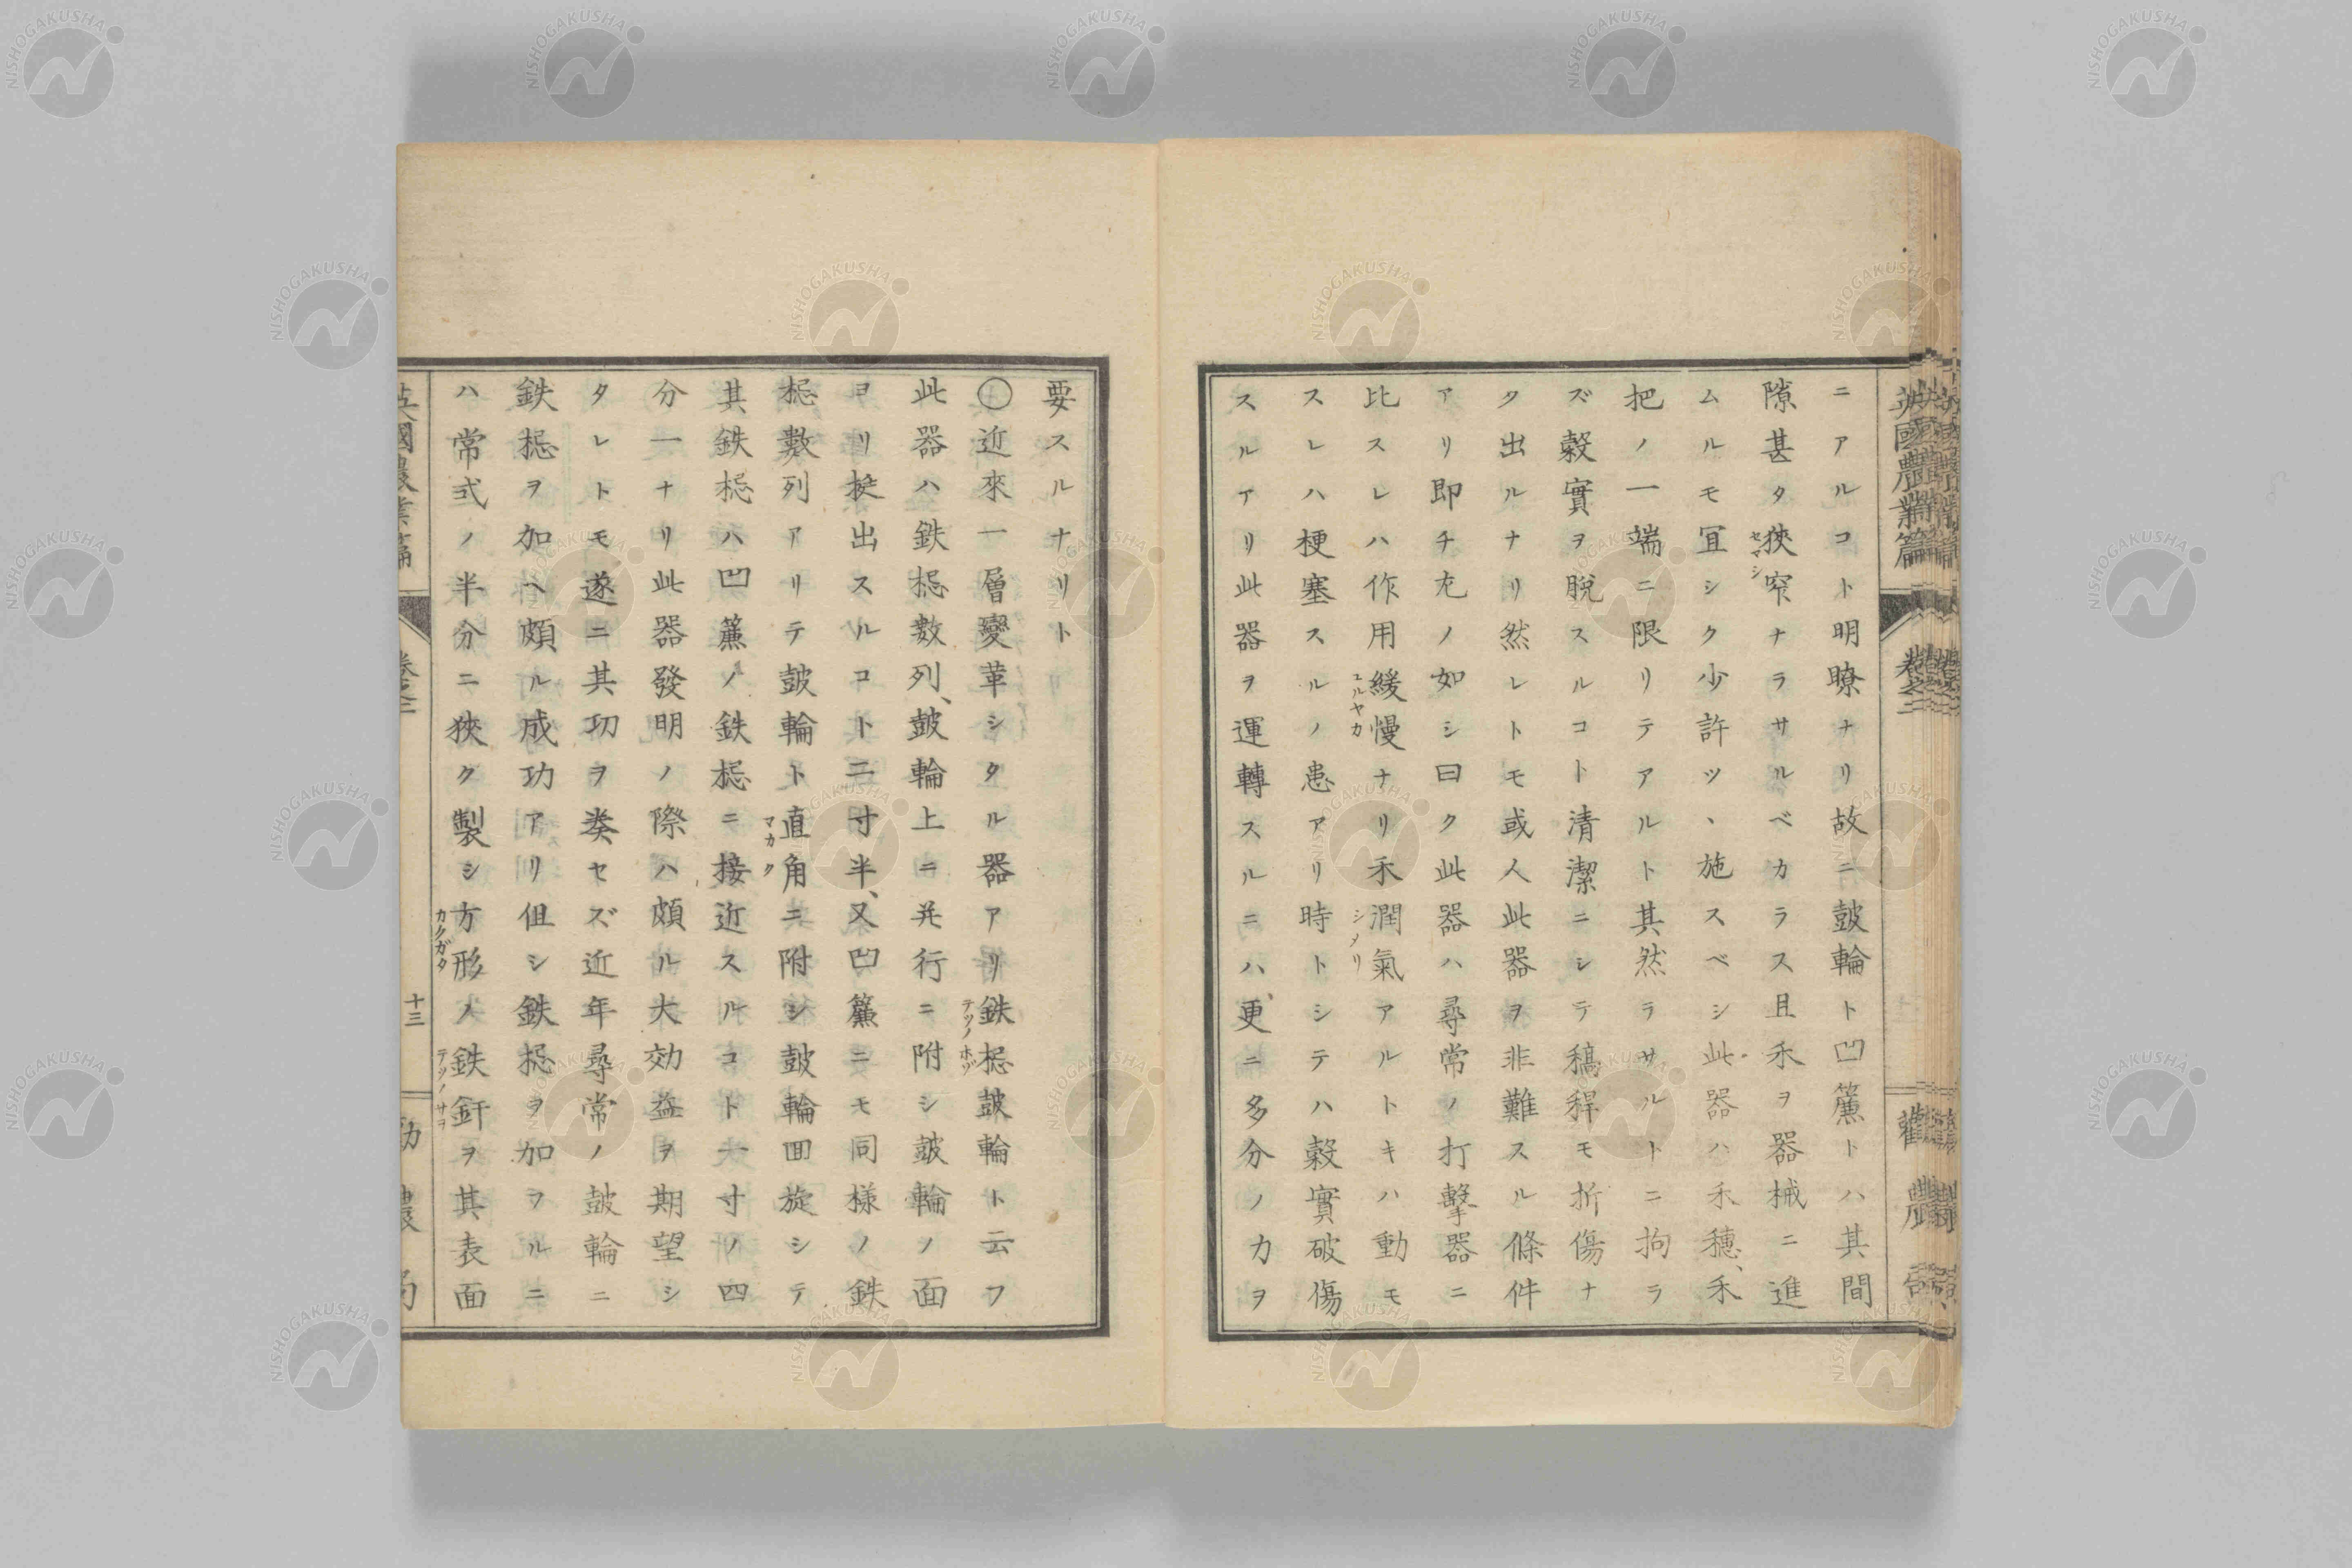 ニアルコト明瞭ナリ故ニ皷輪ト凹簾トハ其間
隙甚タ狹窄ナラサルベカラス且禾ヲ器械ニ進
セマシ
ムルモ宜シク少許ツヽ施スベシ此器ハ禾穗、禾
把ノ一端ニ限リテアルト其然ラサルトニ拘ラ
ズ穀實ヲ脱スルコト清潔ニシテ稿稈モ折傷ナ
ク出ルナリ然レトモ或人此器ヲ非難スル條件
アリ即チ左ノ如シ曰ク此器ハ尋常ノ打擊器ニ
比スレハ作用緩慢ナリ禾潤氣アルトキハ動モ
ユルヤカ
シメリ
スレハ梗塞スルノ患アリ時トシテハ穀實破傷
スルアリ此器ヲ運轉スルニハ、更ニ多分ノ力ヲ
英國農業篇
卷之二
勸農局
要スルナリト
〇近來一層變革シタル器アリ鉄梞皷輪ト云フ
テツノホゾ
此器ハ鉄梞數列、皷輪上ニ并行ニ附シ皷輪ノ面
ヨリ挺出スルコト二寸半、又凹簾ニモ同樣ノ鉄
梞數列アリテ皷輪ト直角ニ附シ皷輪回旋シテ
マカク
其鉄梞ハ凹簾ノ鉄梞ニ接近スルコト一寸ノ四
分一ナリ此器發明ノ際ハ頗ル大効益ヲ期望シ
タレトモ遂ニ其功ヲ奏セズ近年尋常ノ皷輪ニ
鉄梞ヲ加ヘ頗ル成功アリ但シ鉄梞ヲ加フルニ
ハ常式ノ半分ニ狹ク製シ方形ノ鉄釬ヲ其表面
カクガタ
テツノサヲ
英國農業篇
卷之二
十三
勸農局
NISHOGAKUSHA